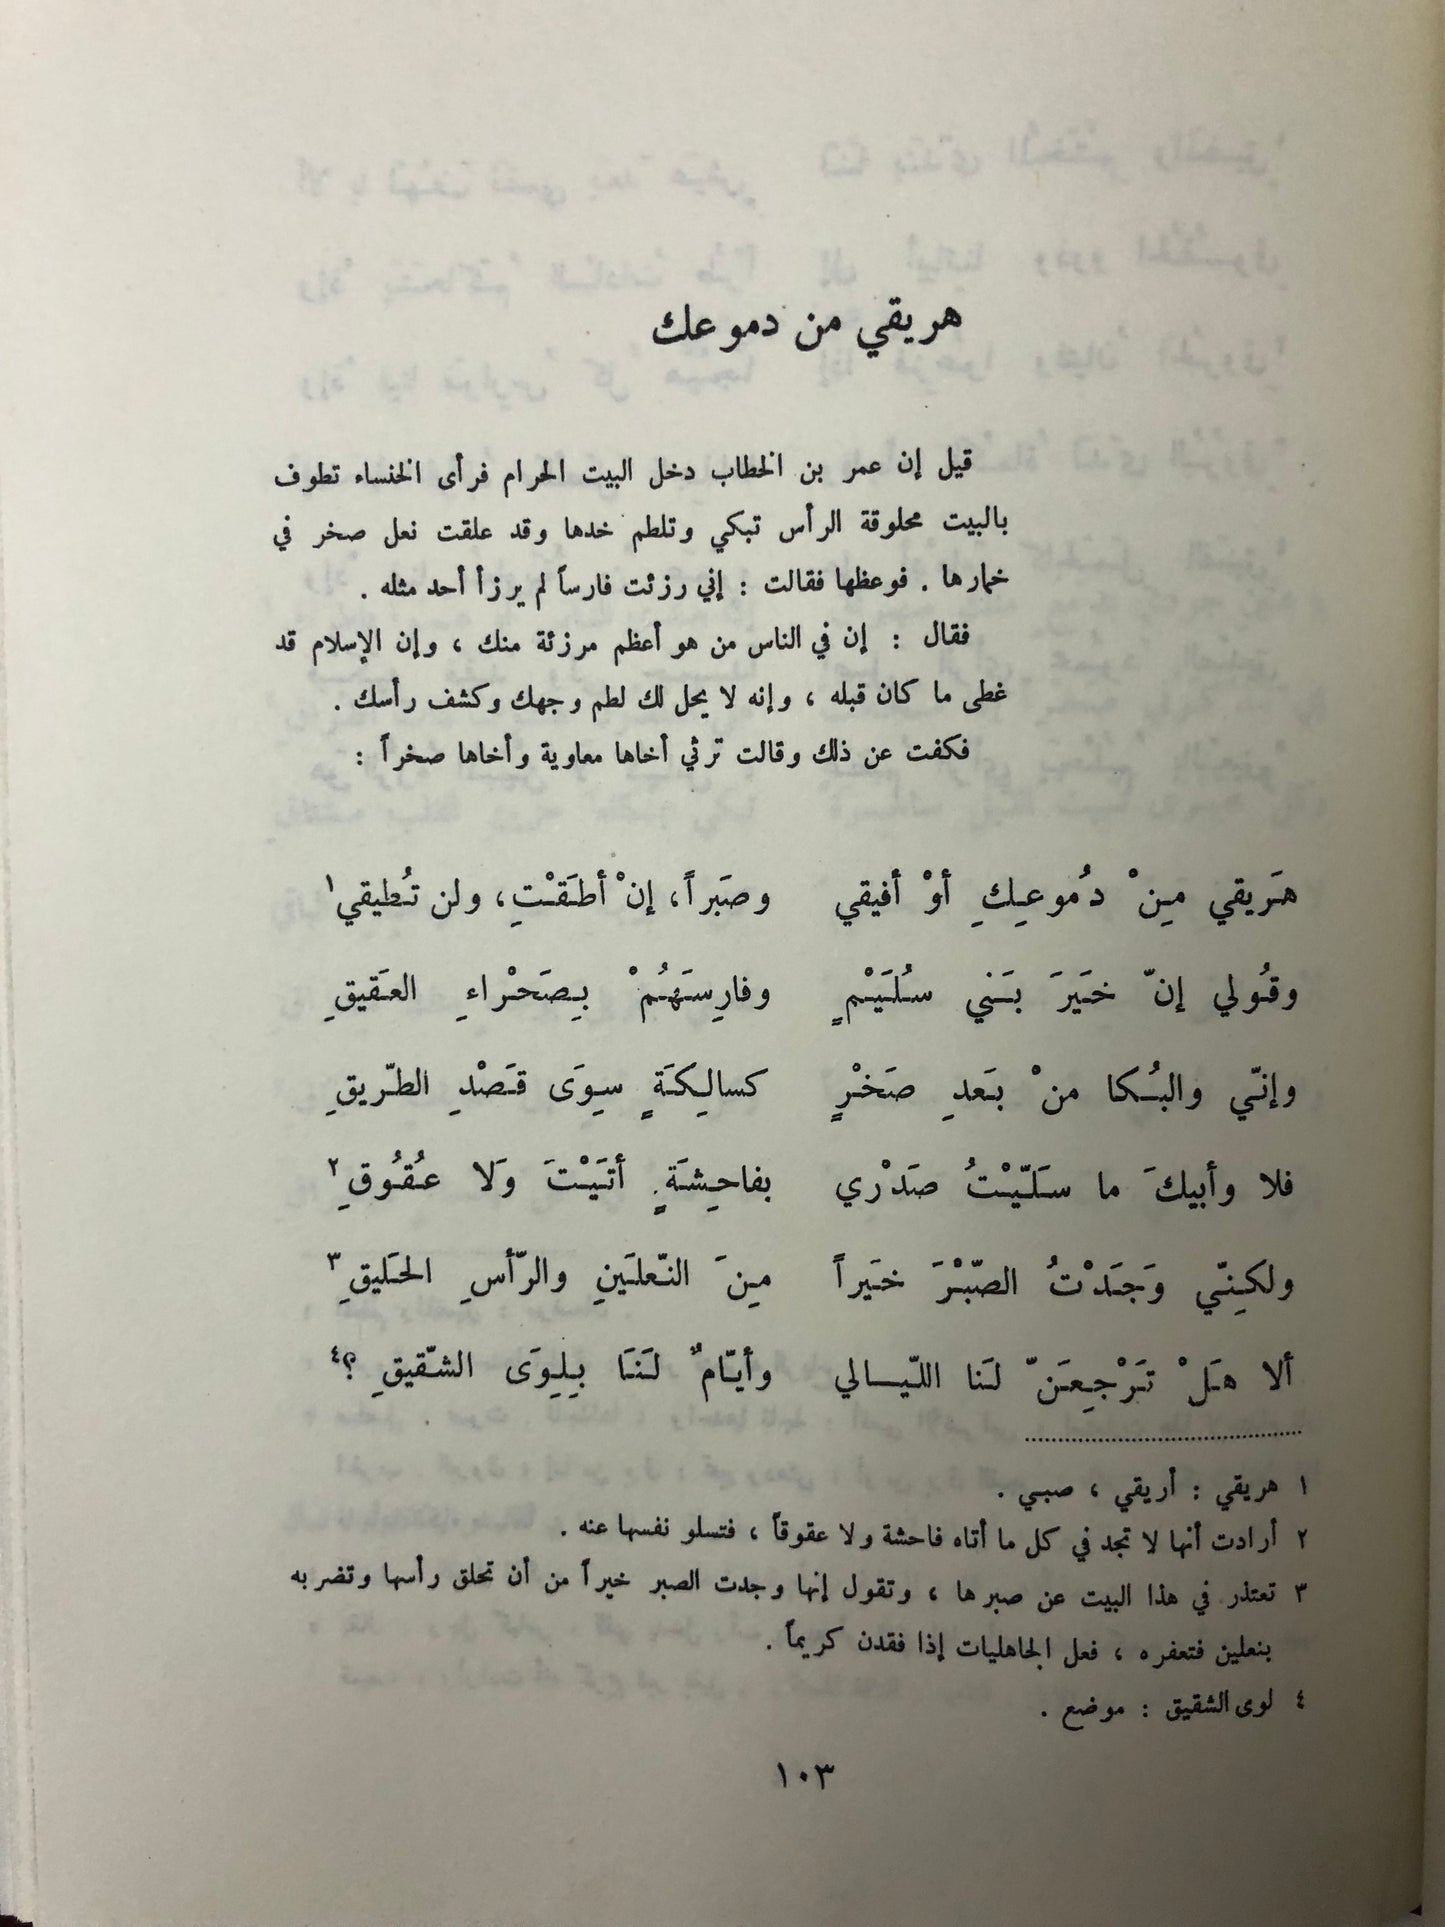 هريقي من دموعك
قيل إن عمر بن الخطاب دخل البيت الحرام فرأى الخنساء تطوف
بالبيت محلوقة الرأس تبكي وتلطم خدها وقد علقت نعل صخر في
خمارها . فوعظها فقالت : إني رزئت فارساً لم يرزأ أحد مثله .
فقال : إن في الناس من هو أعظم مرزئة منك ، وإن الإسلام قد
غطى ما كان قبله ، وإنه لا يحل لك لطم وجهك وكشف رأسك .
فكفت عن ذلك وقالت ترثي أخاها معاوية وأخاها صخراً :
هَريقي مِنْ دُموعِكِ أوْ أفيقي وصَبراً، إنْ أطَقْتِ، ولن تُطيقي١
وقُولي إنّ خَيرَ بَني سُلَيْمٍ وفارِسَهُمْ بِصَحْراءِ العَقيقِ
وإنّي والبُكا منْ بَعدِ صَخْرٍ كسالِكَةٍ سِوَى قَصْدِ الطّريقِ
فلا وأبيكَ ما سَلّيْتُ صَدْري بفاحِشَةٍ أتَيْتَ وَلا عُقُوقِ٢
ولكِنّي وَجَدْتُ الصّبْرَ خَيراً مِنَ النّعلَينِ والرّأسِ الحَليقِ٣
ألا هَلْ تَرْجِعَنّ لَنا اللّيالي وأيّامٌ لَنَا بِلِوَى الشّقيقِ ؟٤
١ هريقي : أريقي ، صبي .
٢ أرادت أنها لا تجد في كل ما أتاه فاحشة ولا عقوقاً ، فتسلو نفسها عنه .
٣ تعتذر في هذا البيت عن صبرها ، وتقول إنها وجدت الصبر خيراً من أن تحلق رأسها وتضربه
بنعلين فتعفره ، فعل الجاهليات إذا فقدن كريماً .
٤ لوى الشقيق : موضع .
١٠٣